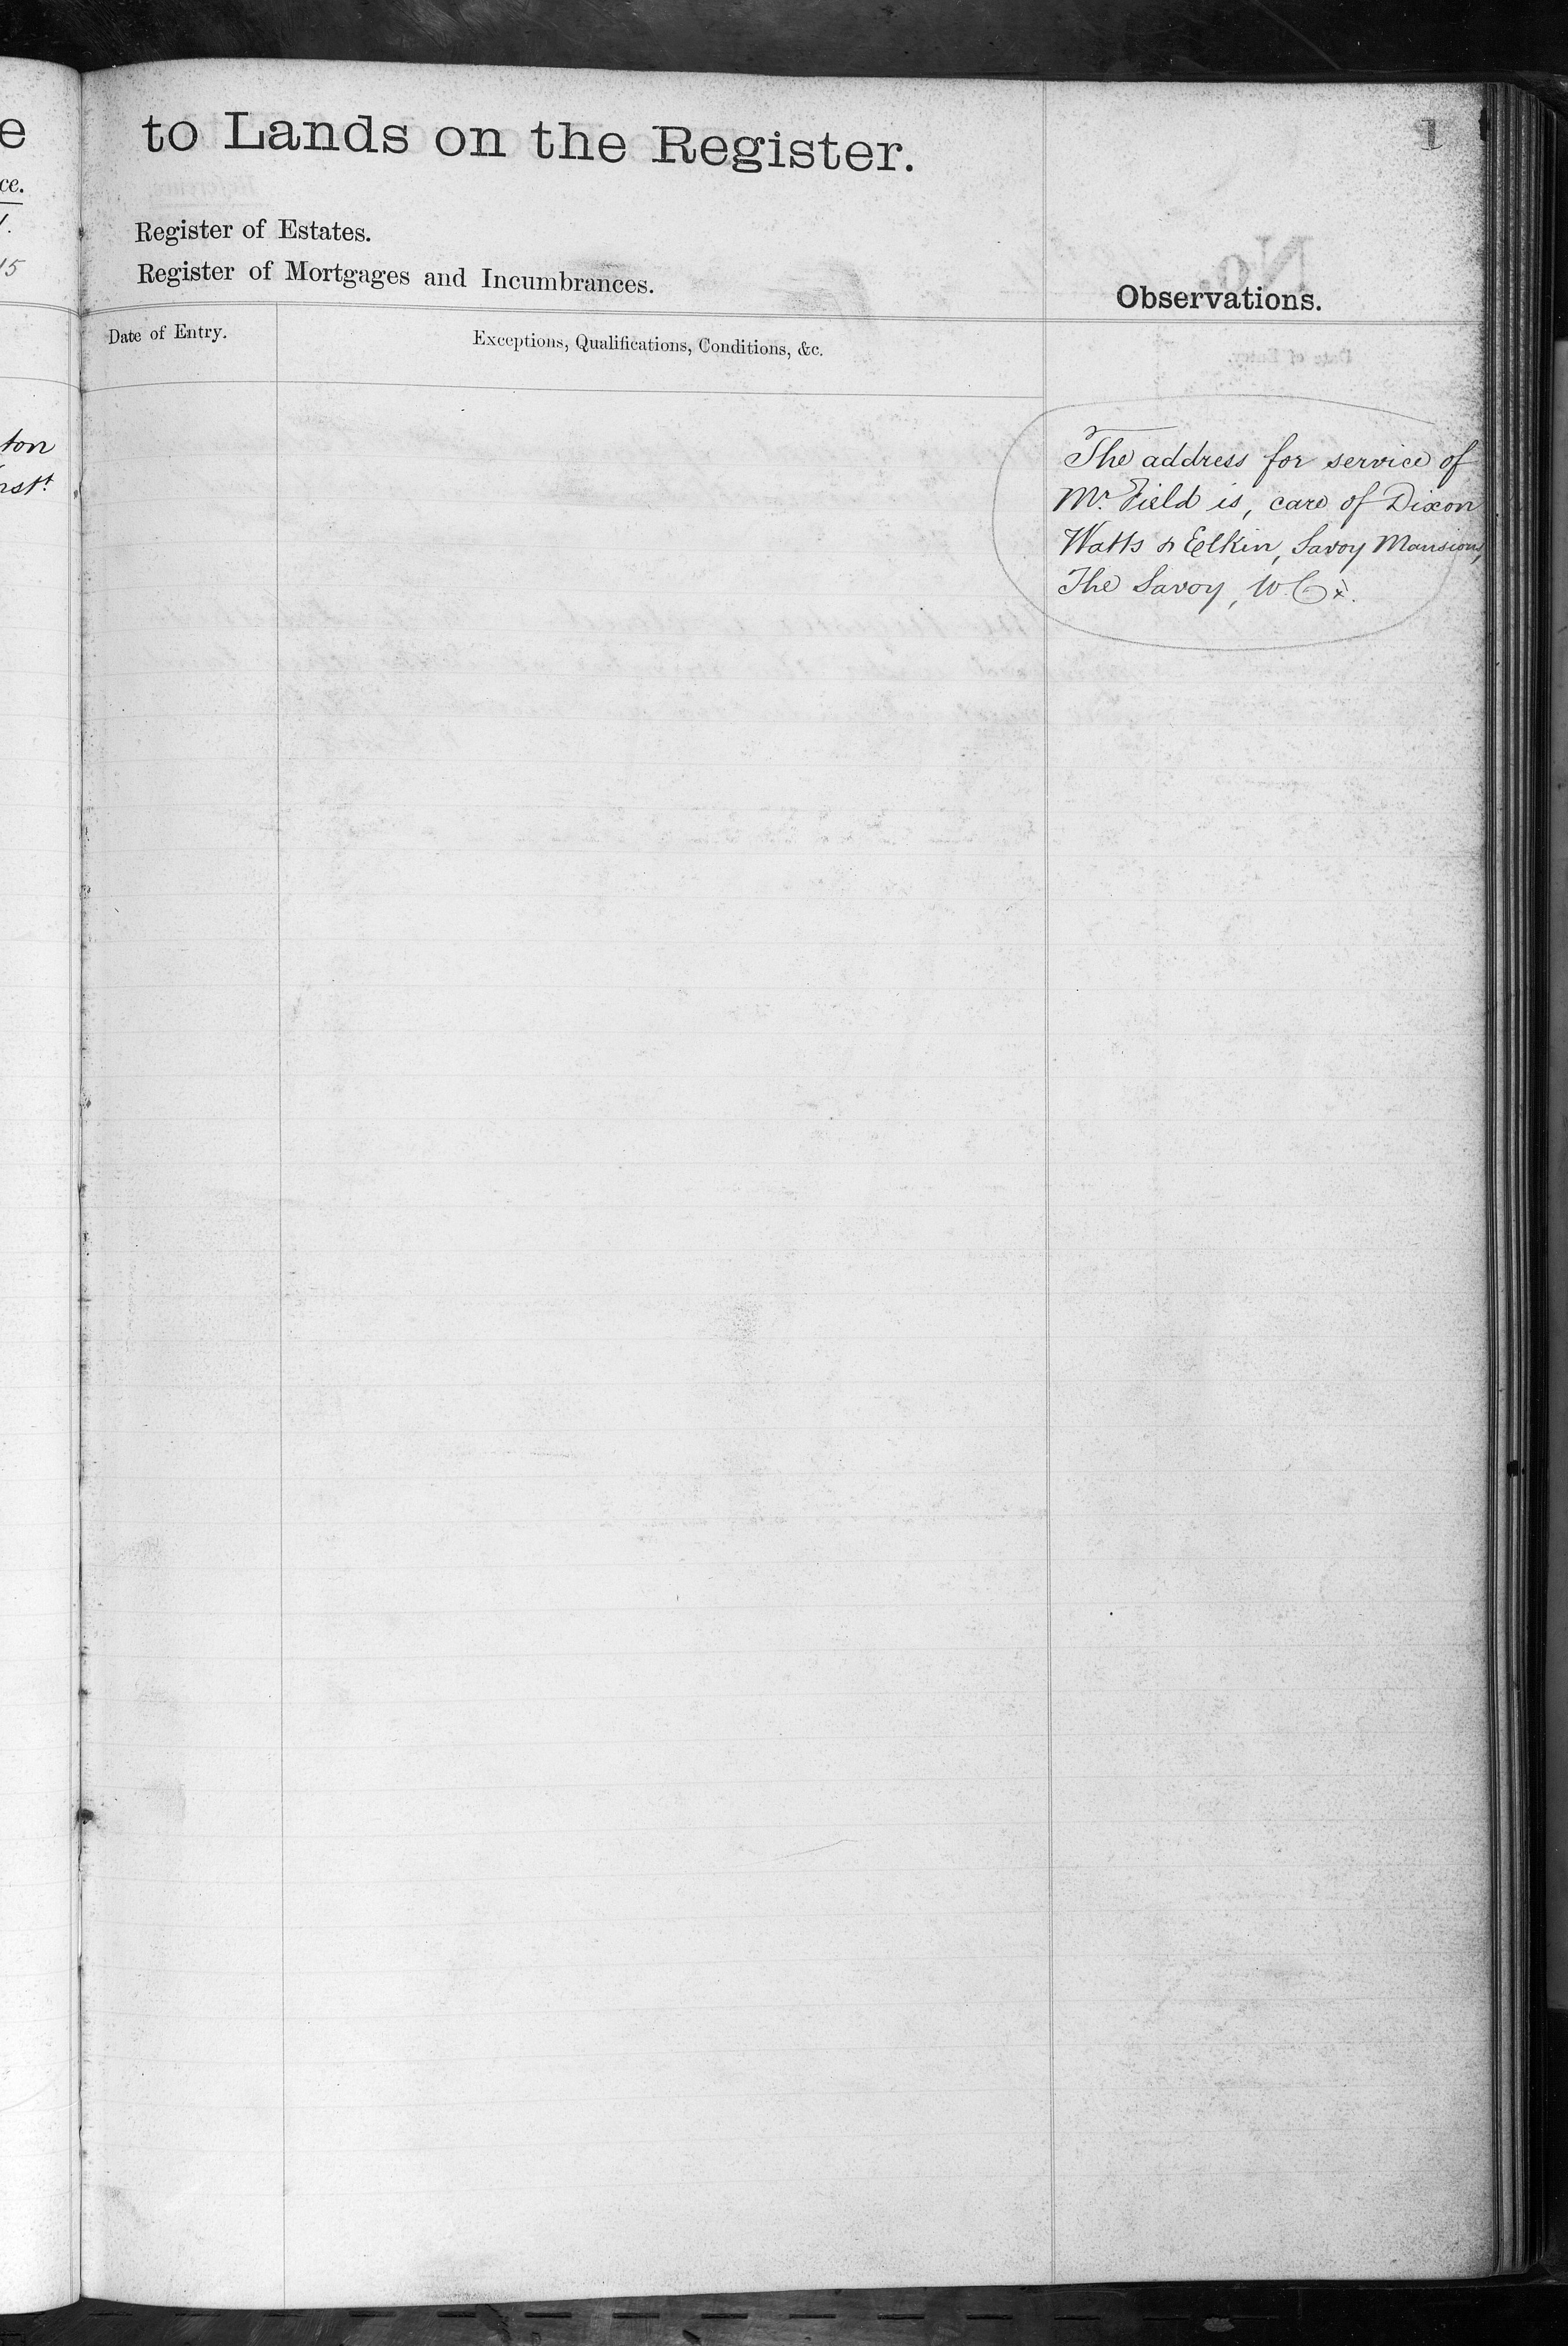 e
to Lands on the Register.
1
ce.
Register of Estates.
15
Register of Mortgages and Incumbrances.
Observations.
Date of Entry.
Exceptions, Qualifications, Conditions, &c.
ton
The address for service of
Mr. Field is, care of Dixon
Watts & Elkin, Savoy Mansions,
The Savoy, W.C.